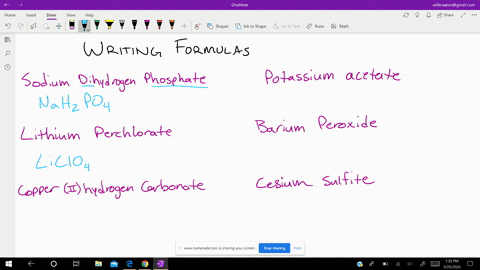 OneNote
willbeaton@gmail.com
File Home Insert Draw View Help
Shapes Ink to Shape Ink to Text Ruler Math
WRITING FORMULAS
Sodium Dihydrogen Phosphate
NaH2PO4
Lithium Perchlorate
LiClO4
Copper (II) hydrogen Carbonate
Potassium acetate
Barium Peroxide
Cesium Sulfite
www.numerade.com is sharing your screen. Stop sharing Hide